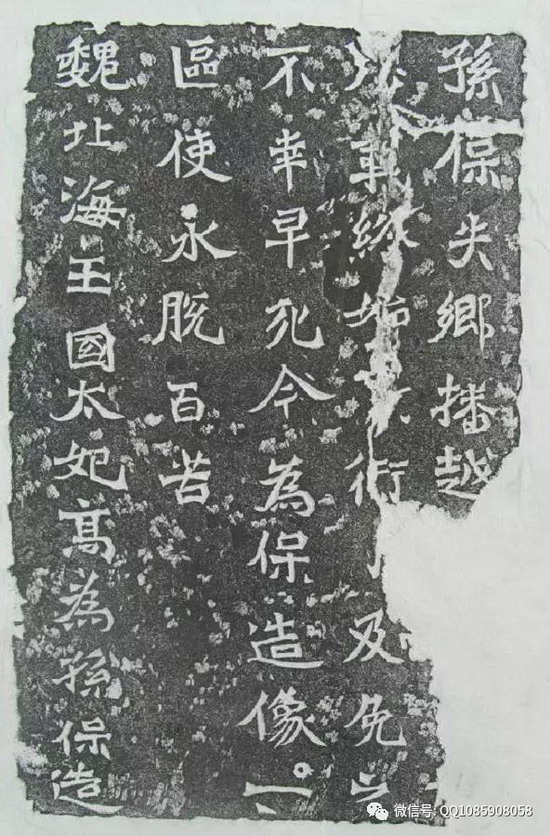 孫保失鄉播越
終始及免
不幸早死今為保造像一
區使永脫百苦
魏北海王國太妃高為孫保造
微信号: QQ1085908058